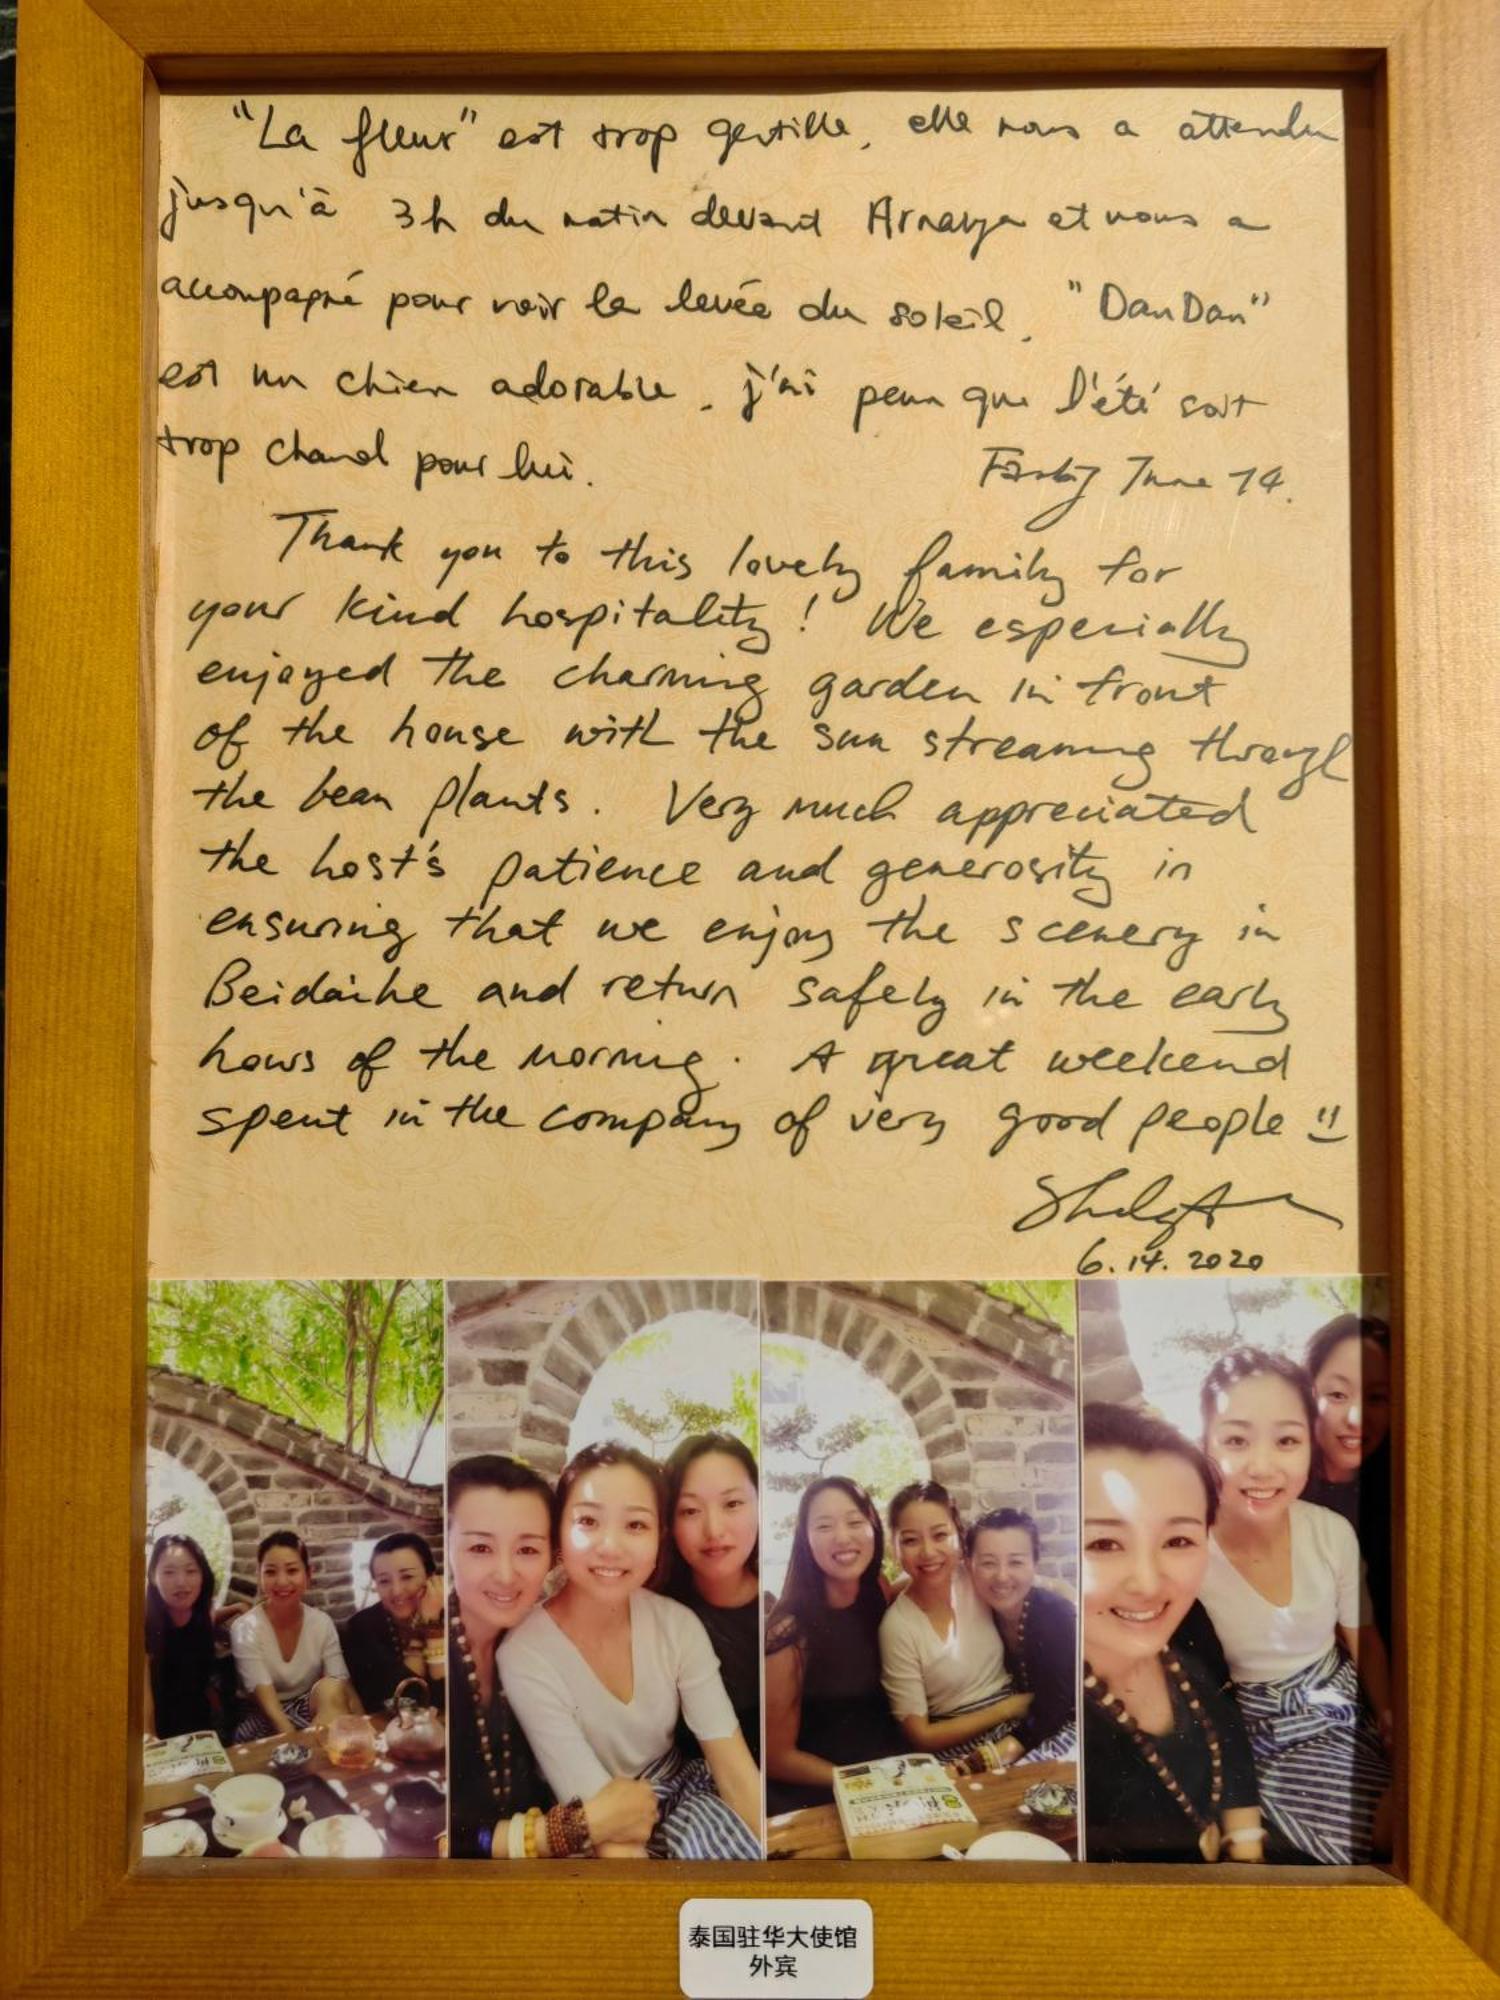 "La fleur" est trop gentille, elle nous a attendu
jusqu'à 3h du matin devant Arnaya et nous a
accompagné pour voir le levée du soleil. "DanDan"
est un chien adorable. j'ai peur que l'été soit
trop chaud pour lui.
June 14.
Thank you to this lovely family for
your kind hospitality! We especially
enjoyed the charming garden in front
of the house with the sun streaming through
the bean plants. Very much appreciated
the host's patience and generosity in
ensuring that we enjoy the scenery in
Beidaihe and return safely in the early
hours of the morning. A great weekend
spent in the company of very good people
6.14.2020
泰国驻华大使馆
外宾